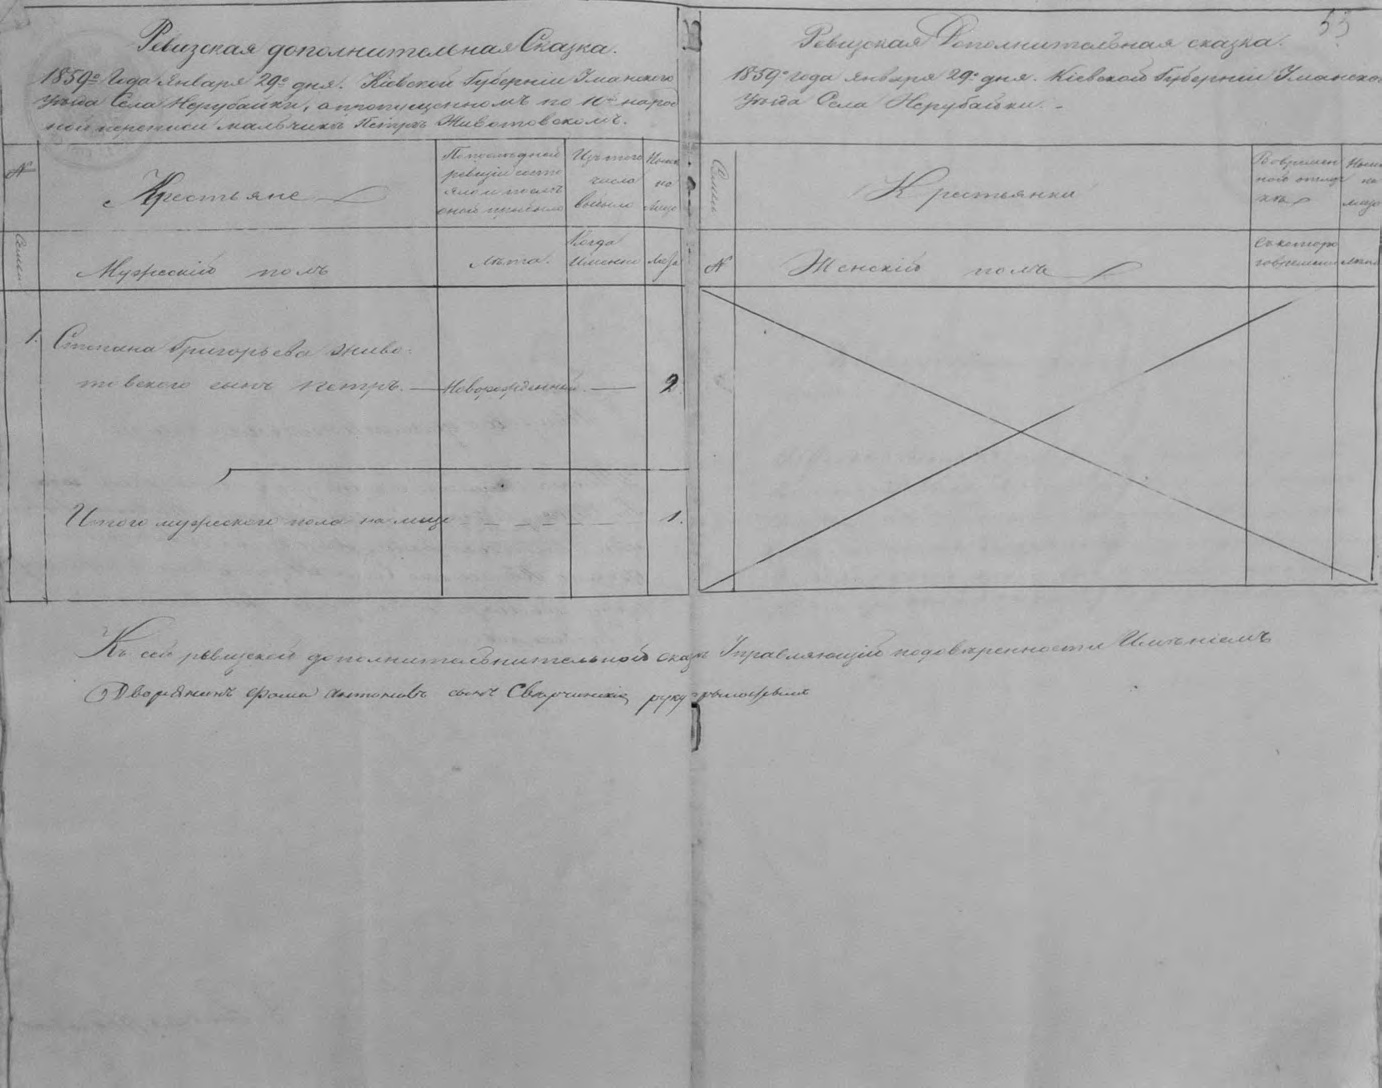 53
Ревизская дополнительная Сказка.
1859го Года Января 29го дня. Кіевской Губерніи Уманского
уѣзда Села Нерубайки, о пропущенномъ по 10й народ
ной переписи мальчикѣ Петрѣ Животовскомъ.
№
Семьи
Крестьяне
По последней
ревизіи состо
яло и послѣ
оной прибыло
Изъ того
числа
выбыло
Ныне
на
лицо
Мужескій полъ
Лѣта
Когда
Именно
Лѣта
1. Степана Григорьева Живо-
товского сынъ Петръ. — Новорожденный. — 2
Итого мужеского пола на лицо 1.
Ревизская Дополнительная сказка.
1859го года Января 29го дня. Кіевской Губерніи Уманского
уѣзда Села Нерубайки. -
Семьи
№
Крестьянки
Во времен
ной отлуч
кѣ
Ныне
на
лицо
Женскій полъ
Съ которо
го времени
Лѣта
Къ сей рѣвизской дополнитадьнительной сказкѣ Управляющій по довѣренности Имѣніемъ
Дворянинъ Фома Антоновъ сынъ Сварчинскій руку приложилъ